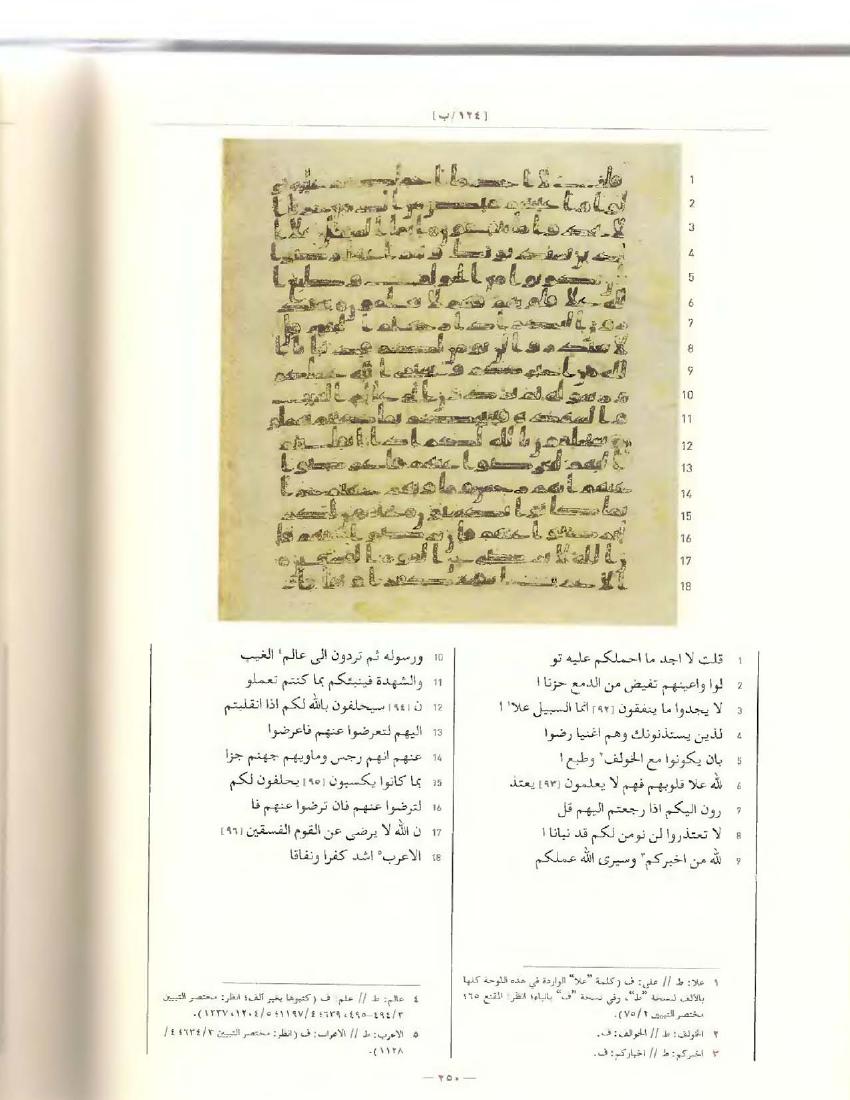 [١٢٤/ب]
1 قلت لا اجد ما احملكم عليه تو
2 لوا واعينهم تفيض من الدمع حزنا ا
3 لا يجدوا ما ينفقون [٩٢] انما السبيل علا¹ ا
4 لذين يستذنونك وهم اغنيا رضوا
5 بان يكونوا مع الخولف² وطبع ا
6 لله علا قلوبهم فهم لا يعلمون [٩٣] يعتذ
7 رون اليكم اذا رجعتم اليهم قل
8 لا تعتذروا لن نومن لكم قد نبانا ا
9 لله من اخبركم³ وسيرى الله عملكم
10 ورسوله ثم تردون الى عالم⁴ الغيب
11 والشهدة فينبئكم بما كنتم تعملو
12 ن [٩٤] سيحلفون بالله لكم اذا انقلبتم
13 اليهم لتعرضوا عنهم فاعرضوا
14 عنهم انهم رجس وماويهم جهنم جزا
15 بما كانوا يكسبون [٩٥] يحلفون لكم
16 لترضوا عنهم فان ترضوا عنهم فا
17 ن الله لا يرضى عن القوم الفسقين [٩٦]
18 الاعرب⁵ اشد كفرا ونفاقا
١ علا: ط // على: ف (كلمة "علا" الواردة في هذه اللوحة كلها
بالألف لنسخة "ط"، وفي نسخة "ف" بالياء؛ انظر: المقنع ٦٥؛
مختصر التبيين ٧٥/٢).
٢ الخولف: ط // الخوالف: ف.
٣ اخبركم: ط // اخباركم: ف.
٤ عالم: ط // علم: ف (كتبوها بغير ألف؛ انظر: مختصر التبيين
٥ الاعرب: ط // الاعراب: ف (انظر: مختصر التبيين
١١٢٨).
— ٢٥٠ —